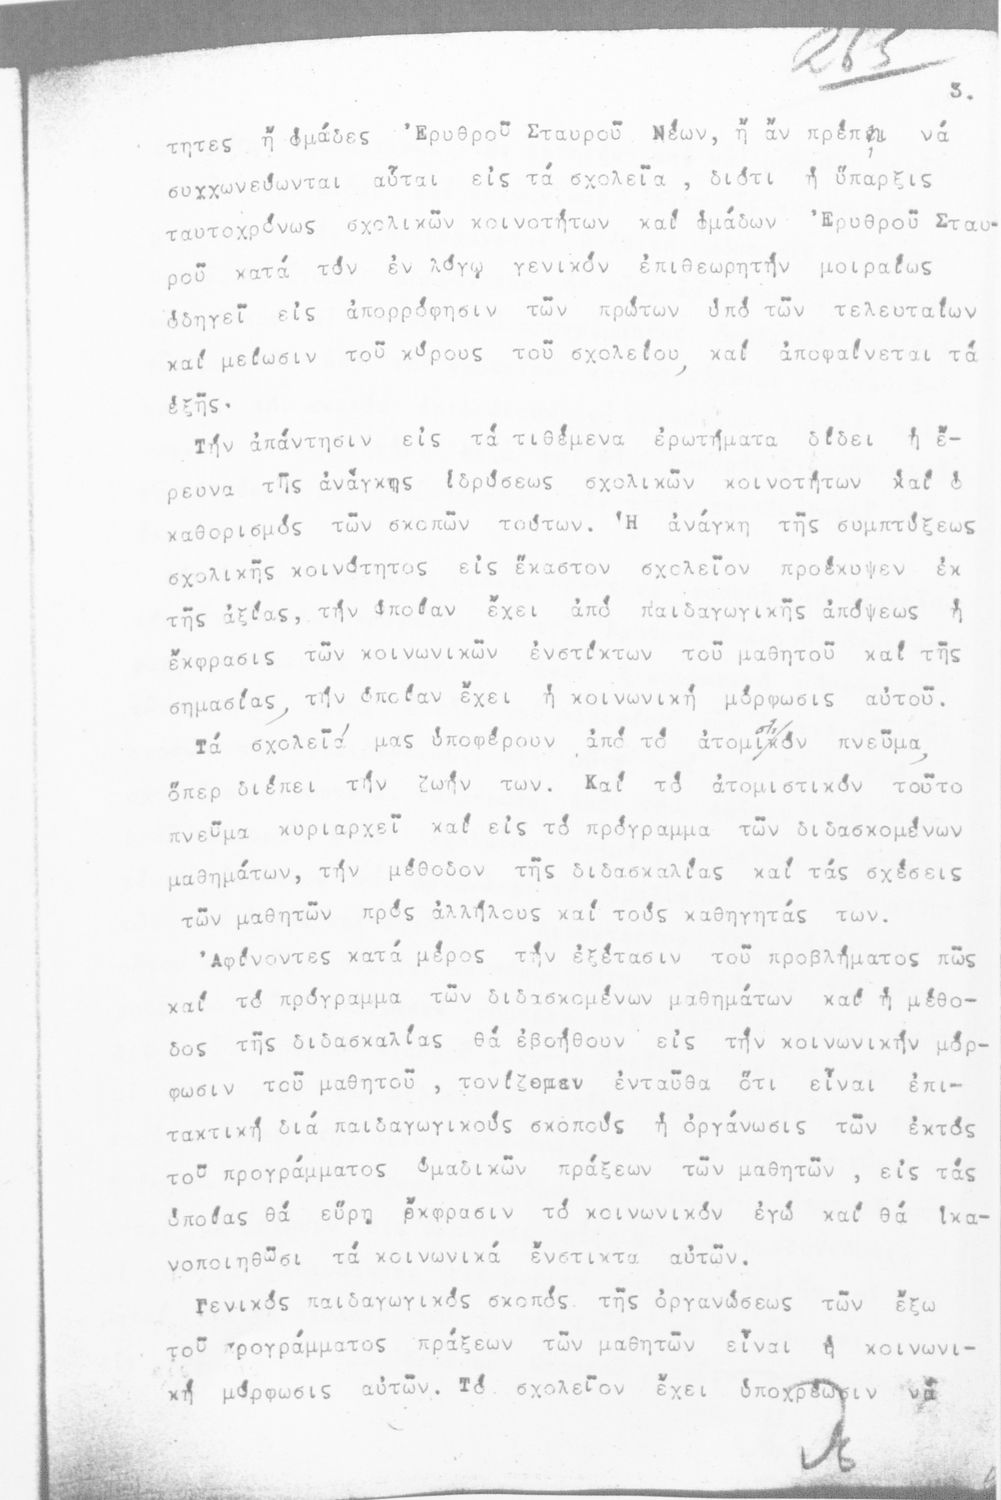 263
3.
τητες ἤ ὁμάδες Ἐρυθροῦ Σταυροῦ Νέων, ἤ ἄν πρέπῃ νά
συγχωνεύωνται αὗται εἰς τά σχολεῖα , διότι ἡ ὕπαρξις
ταυτοχρόνως σχολικῶν κοινοτήτων καί ὁμάδων Ἐρυθροῦ Σταυ-
ροῦ κατά τόν ἐν λόγῳ γενικόν ἐπιθεωρητήν μοιραίως
ὁδηγεῖ εἰς ἀπορρόφησιν τῶν πρώτων ὑπό τῶν τελευταίων
καί μείωσιν τοῦ κύρους τοῦ σχολείου, καί ἀποφαίνεται τά
ἑξῆς.
Τήν ἀπάντησιν εἰς τά τιθέμενα ἐρωτήματα δίδει ἡ ἔ-
ρευνα τῆς ἀνάγκης ἱδρύσεως σχολικῶν κοινοτήτων καί ὁ
καθορισμός τῶν σκοπῶν τούτων. Ἡ ἀνάγκη τῆς συμπτύξεως
σχολικῆς κοινότητος εἰς ἕκαστον σχολεῖον προέκυψεν ἐκ
τῆς ἀξίας, τήν ὁποίαν ἔχει ἀπό παιδαγωγικῆς ἀπόψεως ἡ
ἔκφρασις τῶν κοινωνικῶν ἐνστίκτων τοῦ μαθητοῦ καί τῆς
σημασίας, τήν ὁποίαν ἔχει ἡ κοινωνική μόρφωσις αὐτοῦ.
Τά σχολεῖά μας ὑποφέρουν ἀπό τό ἀτομιστικόν πνεῦμα,
ὅπερ διέπει τήν ζωήν των. Καί τό ἀτομιστικόν τοῦτο
πνεῦμα κυριαρχεῖ καί εἰς τό πρόγραμμα τῶν διδασκομένων
μαθημάτων, τήν μέθοδον τῆς διδασκαλίας καί τάς σχέσεις
τῶν μαθητῶν πρός ἀλλήλους καί τούς καθηγητάς των.
Ἀφίνοντες κατά μέρος τήν ἐξέτασιν τοῦ προβλήματος πῶς
καί τό πρόγραμμα τῶν διδασκομένων μαθημάτων καί ἡ μέθο-
δος τῆς διδασκαλίας θά ἐβοήθουν εἰς τήν κοινωνικήν μόρ-
φωσιν τοῦ μαθητοῦ , τονίζομεν ἐνταῦθα ὅτι εἶναι ἐπι-
τακτική διά παιδαγωγικούς σκοπούς ἡ ὀργάνωσις τῶν ἐκτός
τοῦ προγράμματος ὁμαδικῶν πράξεων τῶν μαθητῶν , εἰς τάς
ὁποίας θά εὕρῃ ἔκφρασιν τό κοινωνικόν ἐγώ καί θά ἱκα-
νοποιηθῶσι τά κοινωνικά ἔνστικτα αὐτῶν.
Γενικός παιδαγωγικός σκοπός τῆς ὀργανώσεως τῶν ἔξω
τοῦ προγράμματος πράξεων τῶν μαθητῶν εἶναι ἡ κοινωνι-
κή μόρφωσις αὐτῶν. Τό σχολεῖον ἔχει ὑποχρέωσιν νά